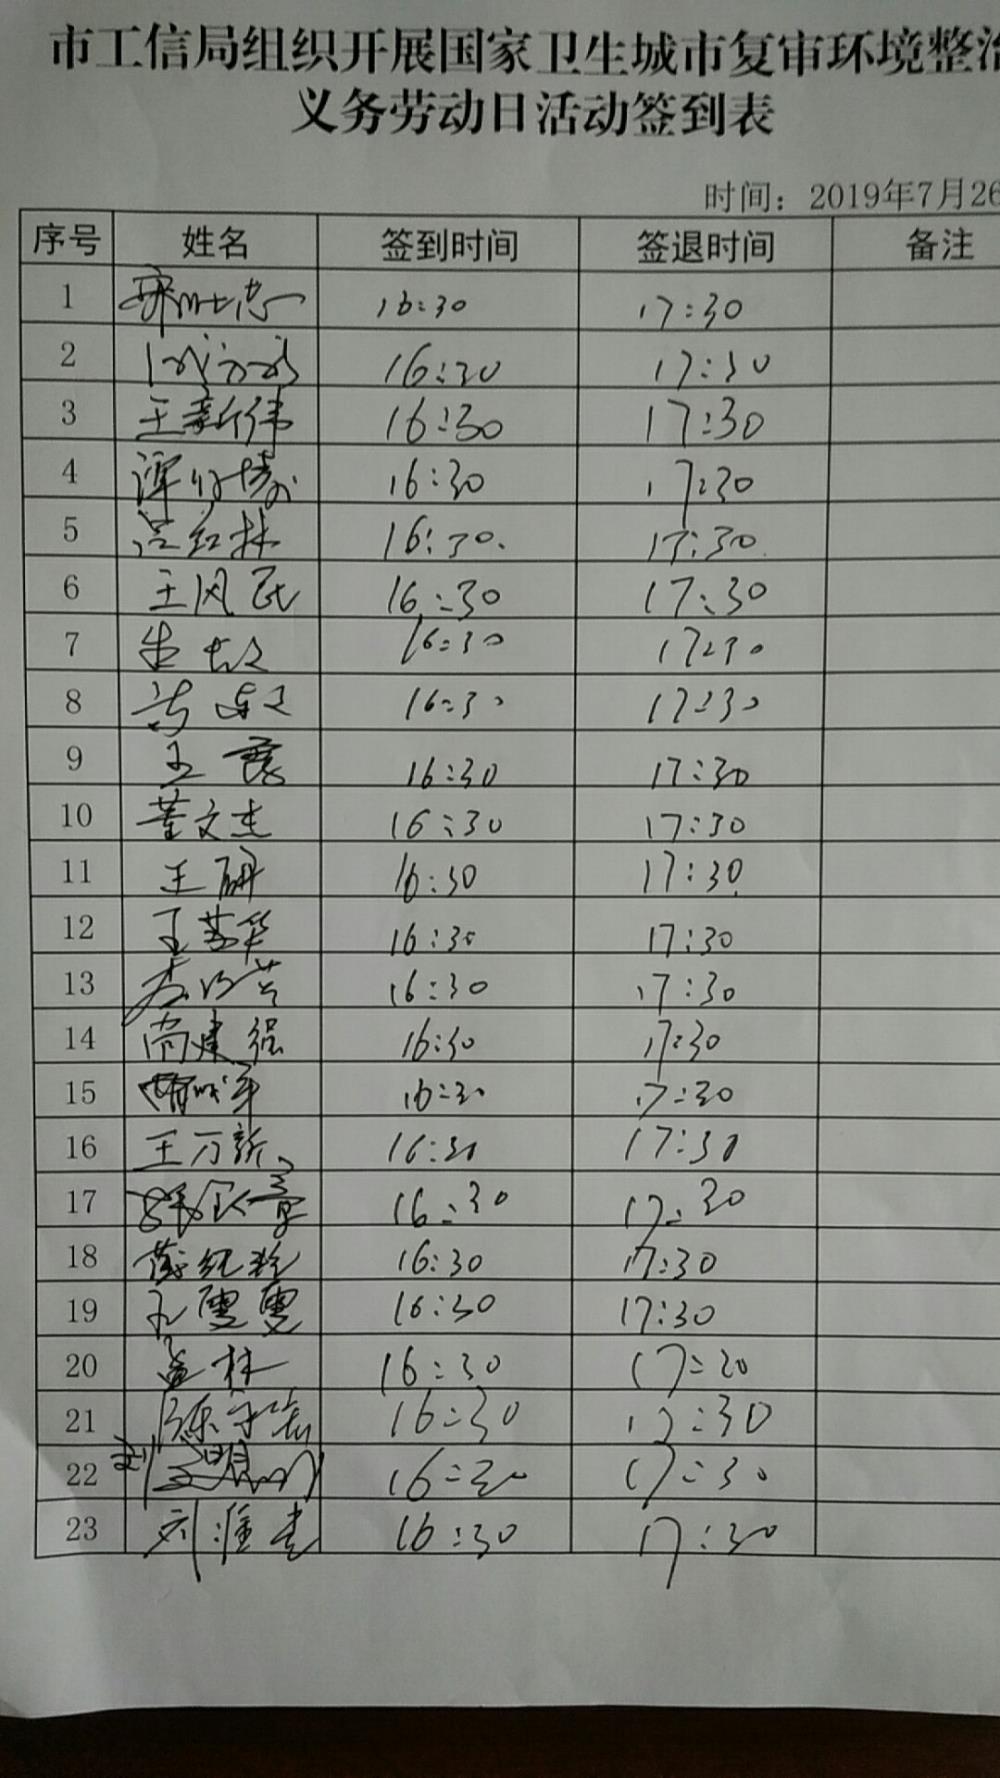 市工信局组织开展国家卫生城市复审环境整治
义务劳动日活动签到表
时间：2019年7月26
序号 姓名 签到时间 签退时间 备注
1 16:30 17:30
2 16:30 17:30
3 王新伟 16:30 17:30
4 16:30 17:30
5 红林 16:30. 17:30
6 王风民 16:30 17:30
7 朱 16:30 17:30
8 16:30 17:30
9 王霞 16:30 17:30
10 董文杰 16:30 17:30
11 王研 16:30 17:30
12 王苏华 16:30 17:30
13 李 16:30 17:30
14 尚建强 16:30 17:30
15 16:30 17:30
16 王万新 16:30 17:30
17 16:30 17:30
18 16:30 17:30
19 孔雯雯 16:30 17:30
20 孟林 16:30 17:30
21 陈 16:30 17:30
22 刘 16:30 17:30
23 刘淮 16:30 17:30